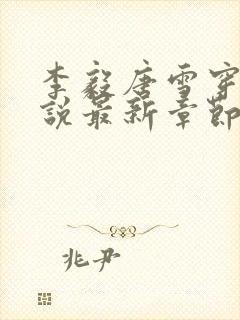 李毅唐雪穿
说最新章节
兆尹